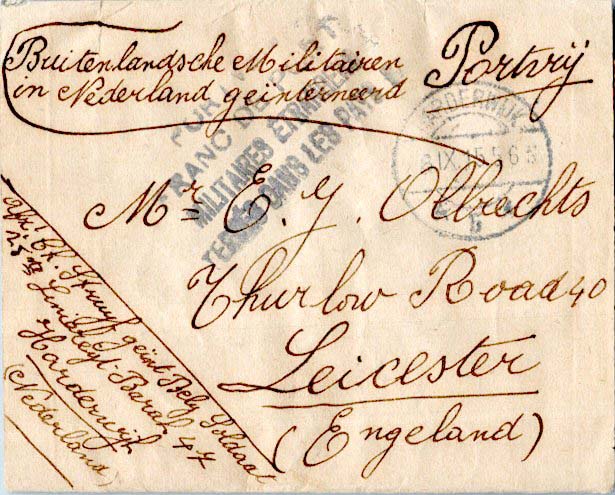 Buitenlandsche Militairen
in Nederland geïnterneerd
Portvrij
FRANC DE PORT
MILITAIRES ETRANGERS
DANS LES PAYS
HARDERWIJK
IX 15 5-6
b
Mr E. J. Olbrechts
Thurlow Road 40
Leicester
(Engeland)
Afz: Ch. Struyf geint Belg Soldaat
Barak 47
Harderwijk
(Nederland)